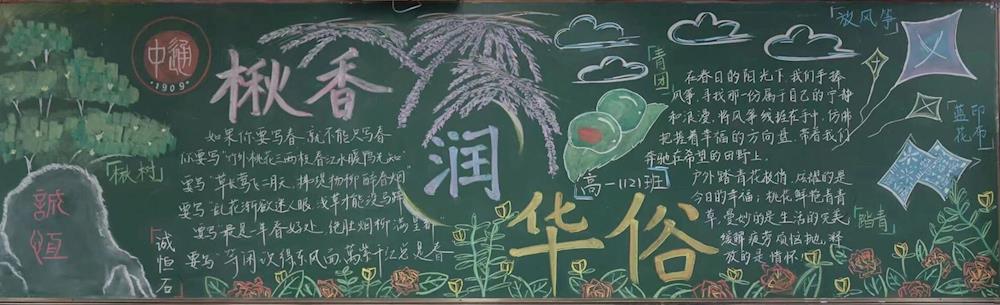 中通
·1909·
楸香
润
华俗
「楸树」
誠恒
「诚恒石」
如果你要写春，就不能只写春
你要写“竹外桃花三两枝，春江水暖鸭先知”
要写“草长莺飞二月天，拂堤杨柳醉春烟”
要写“乱花渐欲迷人眼，浅草才能没马蹄”
要写“最是一年春好处，绝胜烟柳满皇都”
要写“等闲识得东风面，万紫千红总是春
「青团」
「高一1121班」
在春日的阳光下，我们手捧
风筝，寻找那一份属于自己的宁静
和浪漫。将风筝线握在手中，仿佛
把握着幸福的方向盘，带着我们
奔驰在希望的田野上。
户外踏青花极俏，压摧的是
今日的幸福；桃花鲜艳青青
草，曼妙的是生活的
缓解疲劳烦恼抛，释
放的是情怀！
「放风筝」
「蓝印花布」
「踏青」